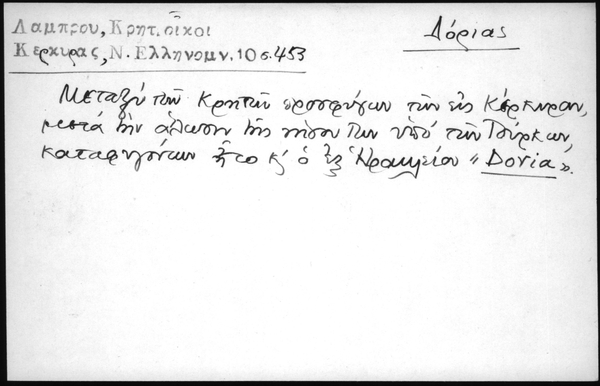 Λαμπρου, Κρητ. οἶκοι
Κερκυρας, Ν. Ελληνομν. 10 σ. 453
Δόριας
Μεταξύ τῶν Κρητῶν προσφύγων τῶν εἰς Κέρκυραν,
μετά τήν ἅλωσιν τῆς νήσου των ὑπό τῶν Τούρκων,
καταφυγόντων ἦτο κ' ὁ ἐξ Ἡρακλείου "Doria".